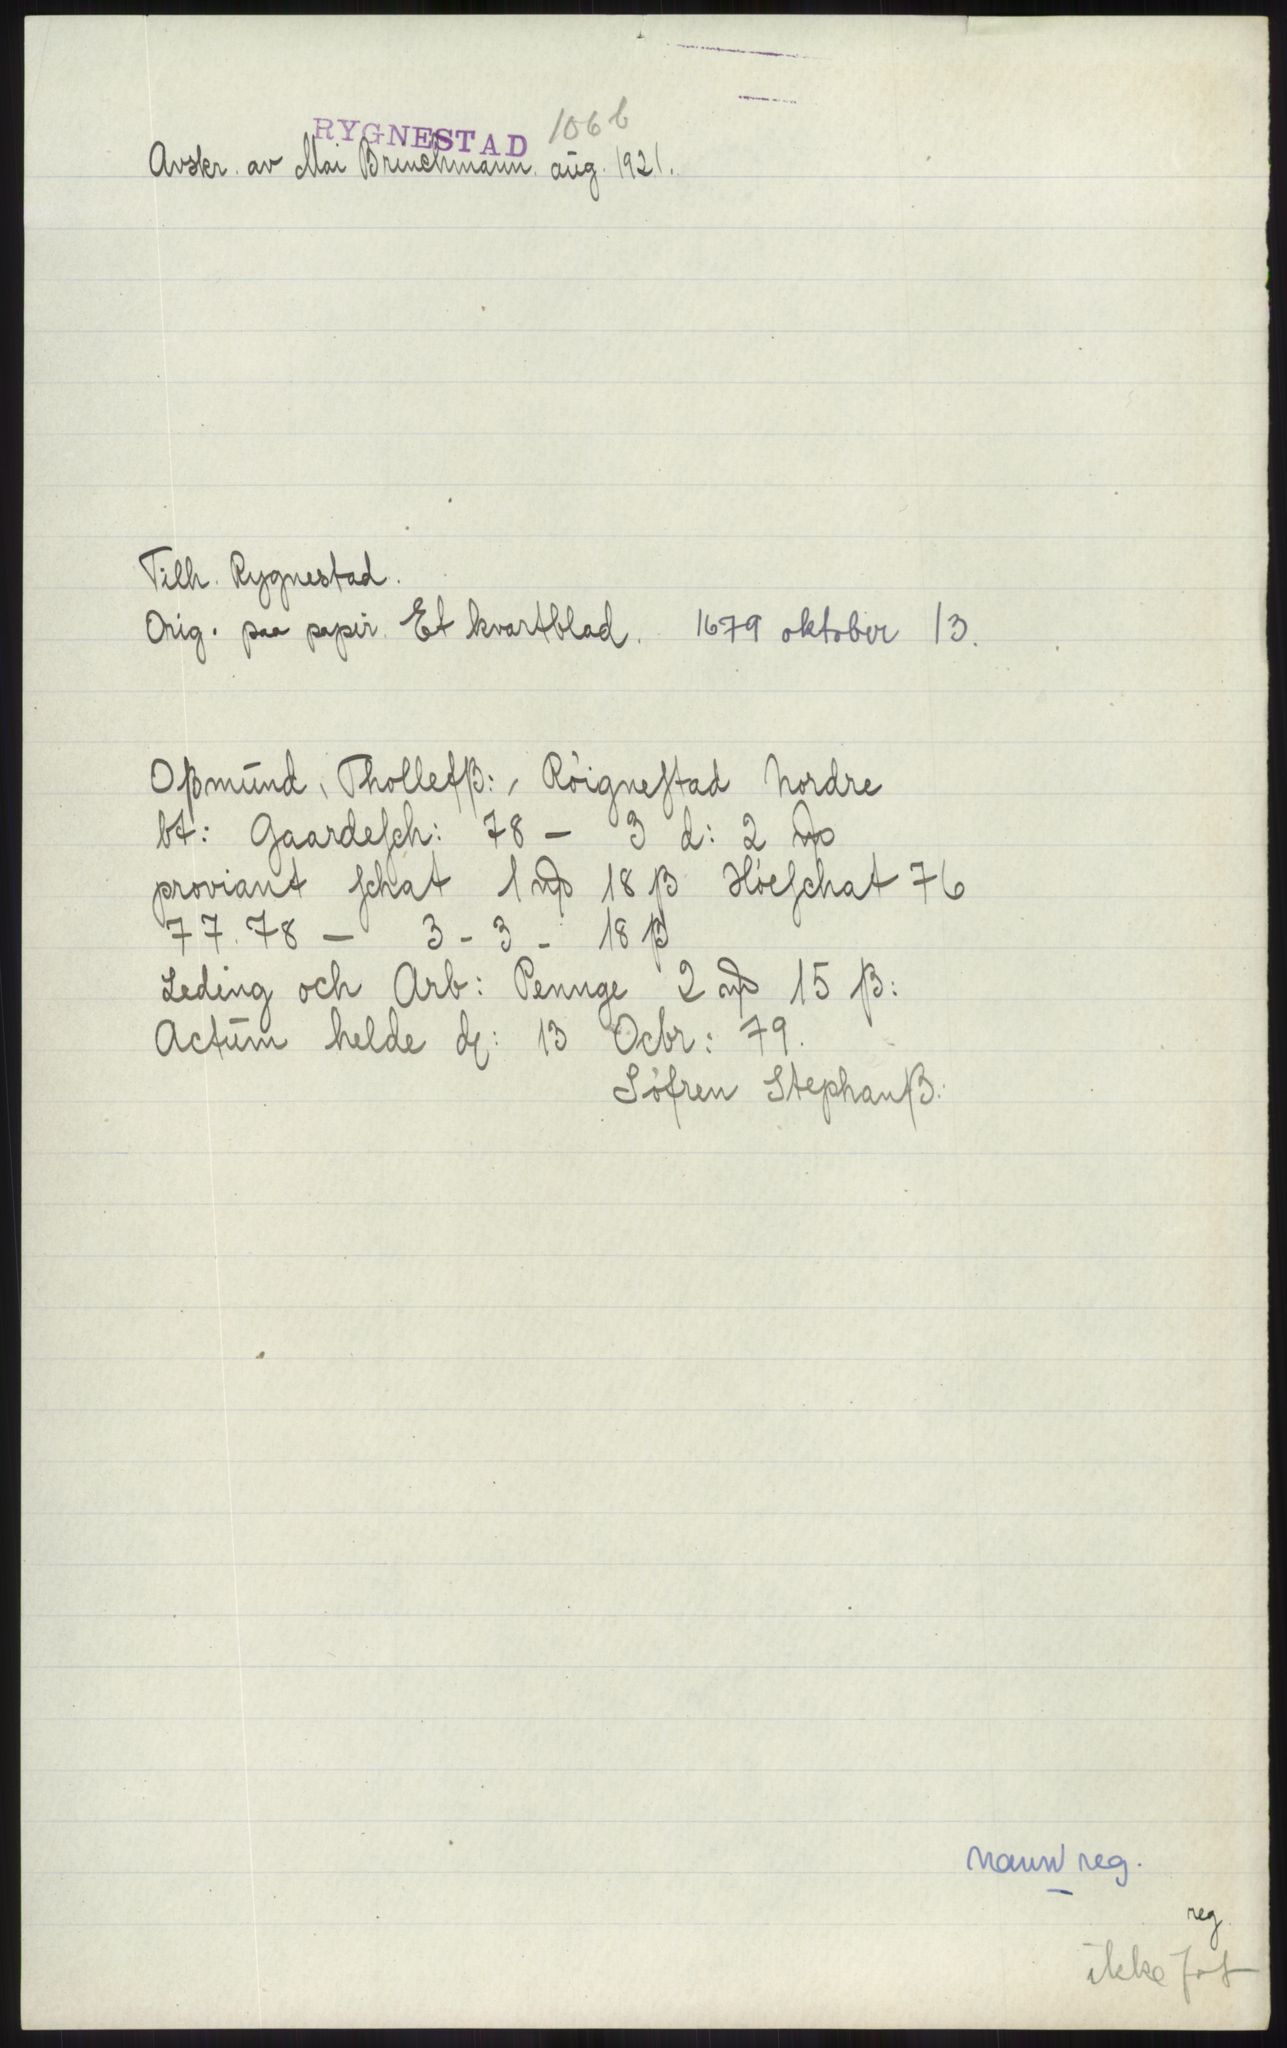 RYGNESTAD 106 b
Avskr. av Mai Bruchmann. aug. 1921.
Tilh. Rygnestad.
Orig. paa papir. Et kvartblad. 1679 oktober 13.
Oßmund, Tholлefß:, Röigneſtad Nordre
bt: Gaardeſch: 78 — 3 d: 2
proviant ſchat 1 18 β Höeſchat 76
77. 78 — 3 - 3 - 18 β
Leding och Arb: Pennge 2 15 β:
Actum helde d: 13 Ocbr: 79.
Söfren Stephanß:
reg.
reg.
ikke fot